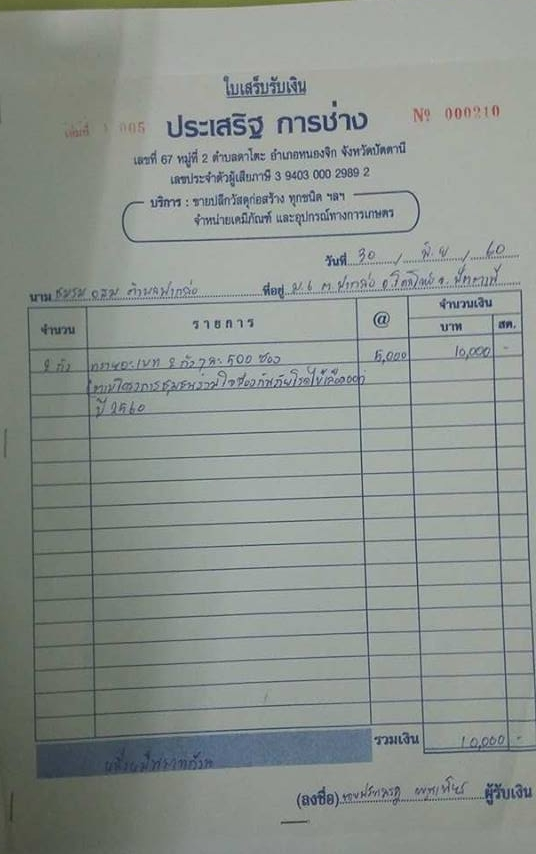 ใบเสร็จรับเงิน
เล่มที่ 005 ประเสริฐ การช่าง № 000210
เลขที่ 67 หมู่ที่ 2 ตำบลดาโต๊ะ อำเภอหนองจิก จังหวัดปัตตานี
เลขประจำตัวผู้เสียภาษี 3 9403 000 2989 2
บริการ : ขายปลีกวัสดุก่อสร้าง ทุกชนิด ฯลฯ
จำหน่ายเคมีภัณฑ์ และอุปกรณ์ทางการเกษตร
วันที่ 30 / มิ.ย / 60
นาม ชมรม อสม ตำบล ที่อยู่ ม.6 ต. อ.โคกโพธิ์ จ. ปัตตานี
จำนวน รายการ @ จำนวนเงิน
บาท สต.
2 ถัง ทรายอะเบท 2 ถังๆละ 500 ซอง 5,000 10,000 -
(ตามโครงการชุมชนร่วมใจป้องกันภัยโรคไข้เลือดออก
ปี 2560
รวมเงิน 10,000 -
หนึ่งหมื่นบาทถ้วน
(ลงชื่อ) ผู้รับเงิน